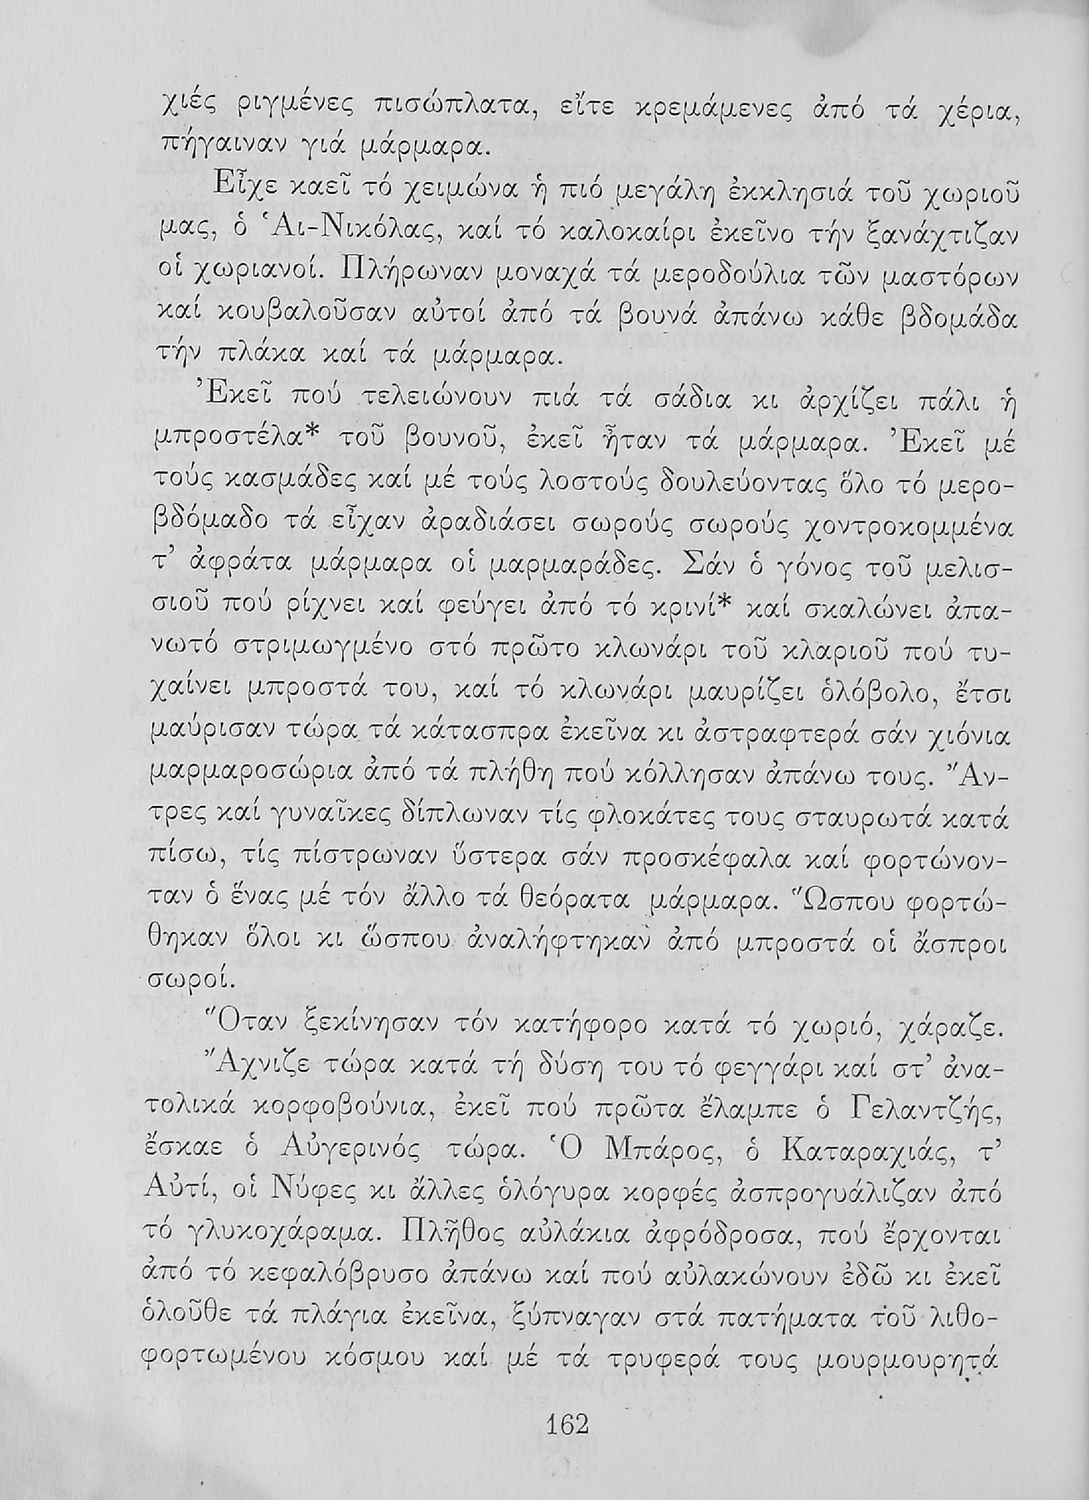 χιές ριγμένες πισώπλατα, εἴτε κρεμάμενες ἀπό τά χέρια,
πήγαιναν γιά μάρμαρα.
Εἶχε καεῖ τό χειμώνα ἡ πιό μεγάλη ἐκκλησιά τοῦ χωριοῦ
μας, ὁ Ἁι-Νικόλας, καί τό καλοκαίρι ἐκεῖνο τήν ξανάχτιζαν
οἱ χωριανοί. Πλήρωναν μοναχά τά μεροδούλια τῶν μαστόρων
καί κουβαλοῦσαν αὐτοί ἀπό τά βουνά ἀπάνω κάθε βδομάδα
τήν πλάκα καί τά μάρμαρα.
Ἐκεῖ πού τελειώνουν πιά τά σάδια κι ἀρχίζει πάλι ἡ
μπροστέλα* τοῦ βουνοῦ, ἐκεῖ ἦταν τά μάρμαρα. Ἐκεῖ μέ
τούς κασμάδες καί μέ τούς λοστούς δουλεύοντας ὅλο τό μερο-
βδόμαδο τά εἶχαν ἀραδιάσει σωρούς σωρούς χοντροκομμένα
τ’ ἀφράτα μάρμαρα οἱ μαρμαράδες. Σάν ὁ γόνος τοῦ μελισ-
σιοῦ πού ρίχνει καί φεύγει ἀπό τό κρινί* καί σκαλώνει ἀπα-
νωτό στριμωγμένο στό πρῶτο κλωνάρι τοῦ κλαριοῦ πού τυ-
χαίνει μπροστά του, καί τό κλωνάρι μαυρίζει ὁλόβολο, ἔτσι
μαύρισαν τώρα τά κάτασπρα ἐκεῖνα κι ἀστραφτερά σάν χιόνια
μαρμαροσώρια ἀπό τά πλήθη πού κόλλησαν ἀπάνω τους. Ἄν-
τρες καί γυναῖκες δίπλωναν τίς φλοκάτες τους σταυρωτά κατά
πίσω, τίς πίστρωναν ὕστερα σάν προσκέφαλα καί φορτώνον-
ταν ὁ ἕνας μέ τόν ἄλλο τά θεόρατα μάρμαρα. Ὥσπου φορτώ-
θηκαν ὅλοι κι ὥσπου ἀναλήφτηκαν ἀπό μπροστά οἱ ἄσπροι
σωροί.
Ὅταν ξεκίνησαν τόν κατήφορο κατά τό χωριό, χάραζε.
Ἄχνιζε τώρα κατά τή δύση του τό φεγγάρι καί στ’ ἀνα-
τολικά κορφοβούνια, ἐκεῖ πού πρῶτα ἔλαμπε ὁ Γελαντζής,
ἔσκαε ὁ Αὐγερινός τώρα. Ὁ Μπάρος, ὁ Καταραχιάς, τ’
Αὐτί, οἱ Νύφες κι ἄλλες ὁλόγυρα κορφές ἀσπρογυάλιζαν ἀπό
τό γλυκοχάραμα. Πλῆθος αὐλάκια ἀφρόδροσα, πού ἔρχονται
ἀπό τό κεφαλόβρυσο ἀπάνω καί πού αὐλακώνουν ἐδῶ κι ἐκεῖ
ὁλοῦθε τά πλάγια ἐκεῖνα, ξύπναγαν στά πατήματα τοῦ λιθο-
φορτωμένου κόσμου καί μέ τά τρυφερά τους μουρμουρητά
162